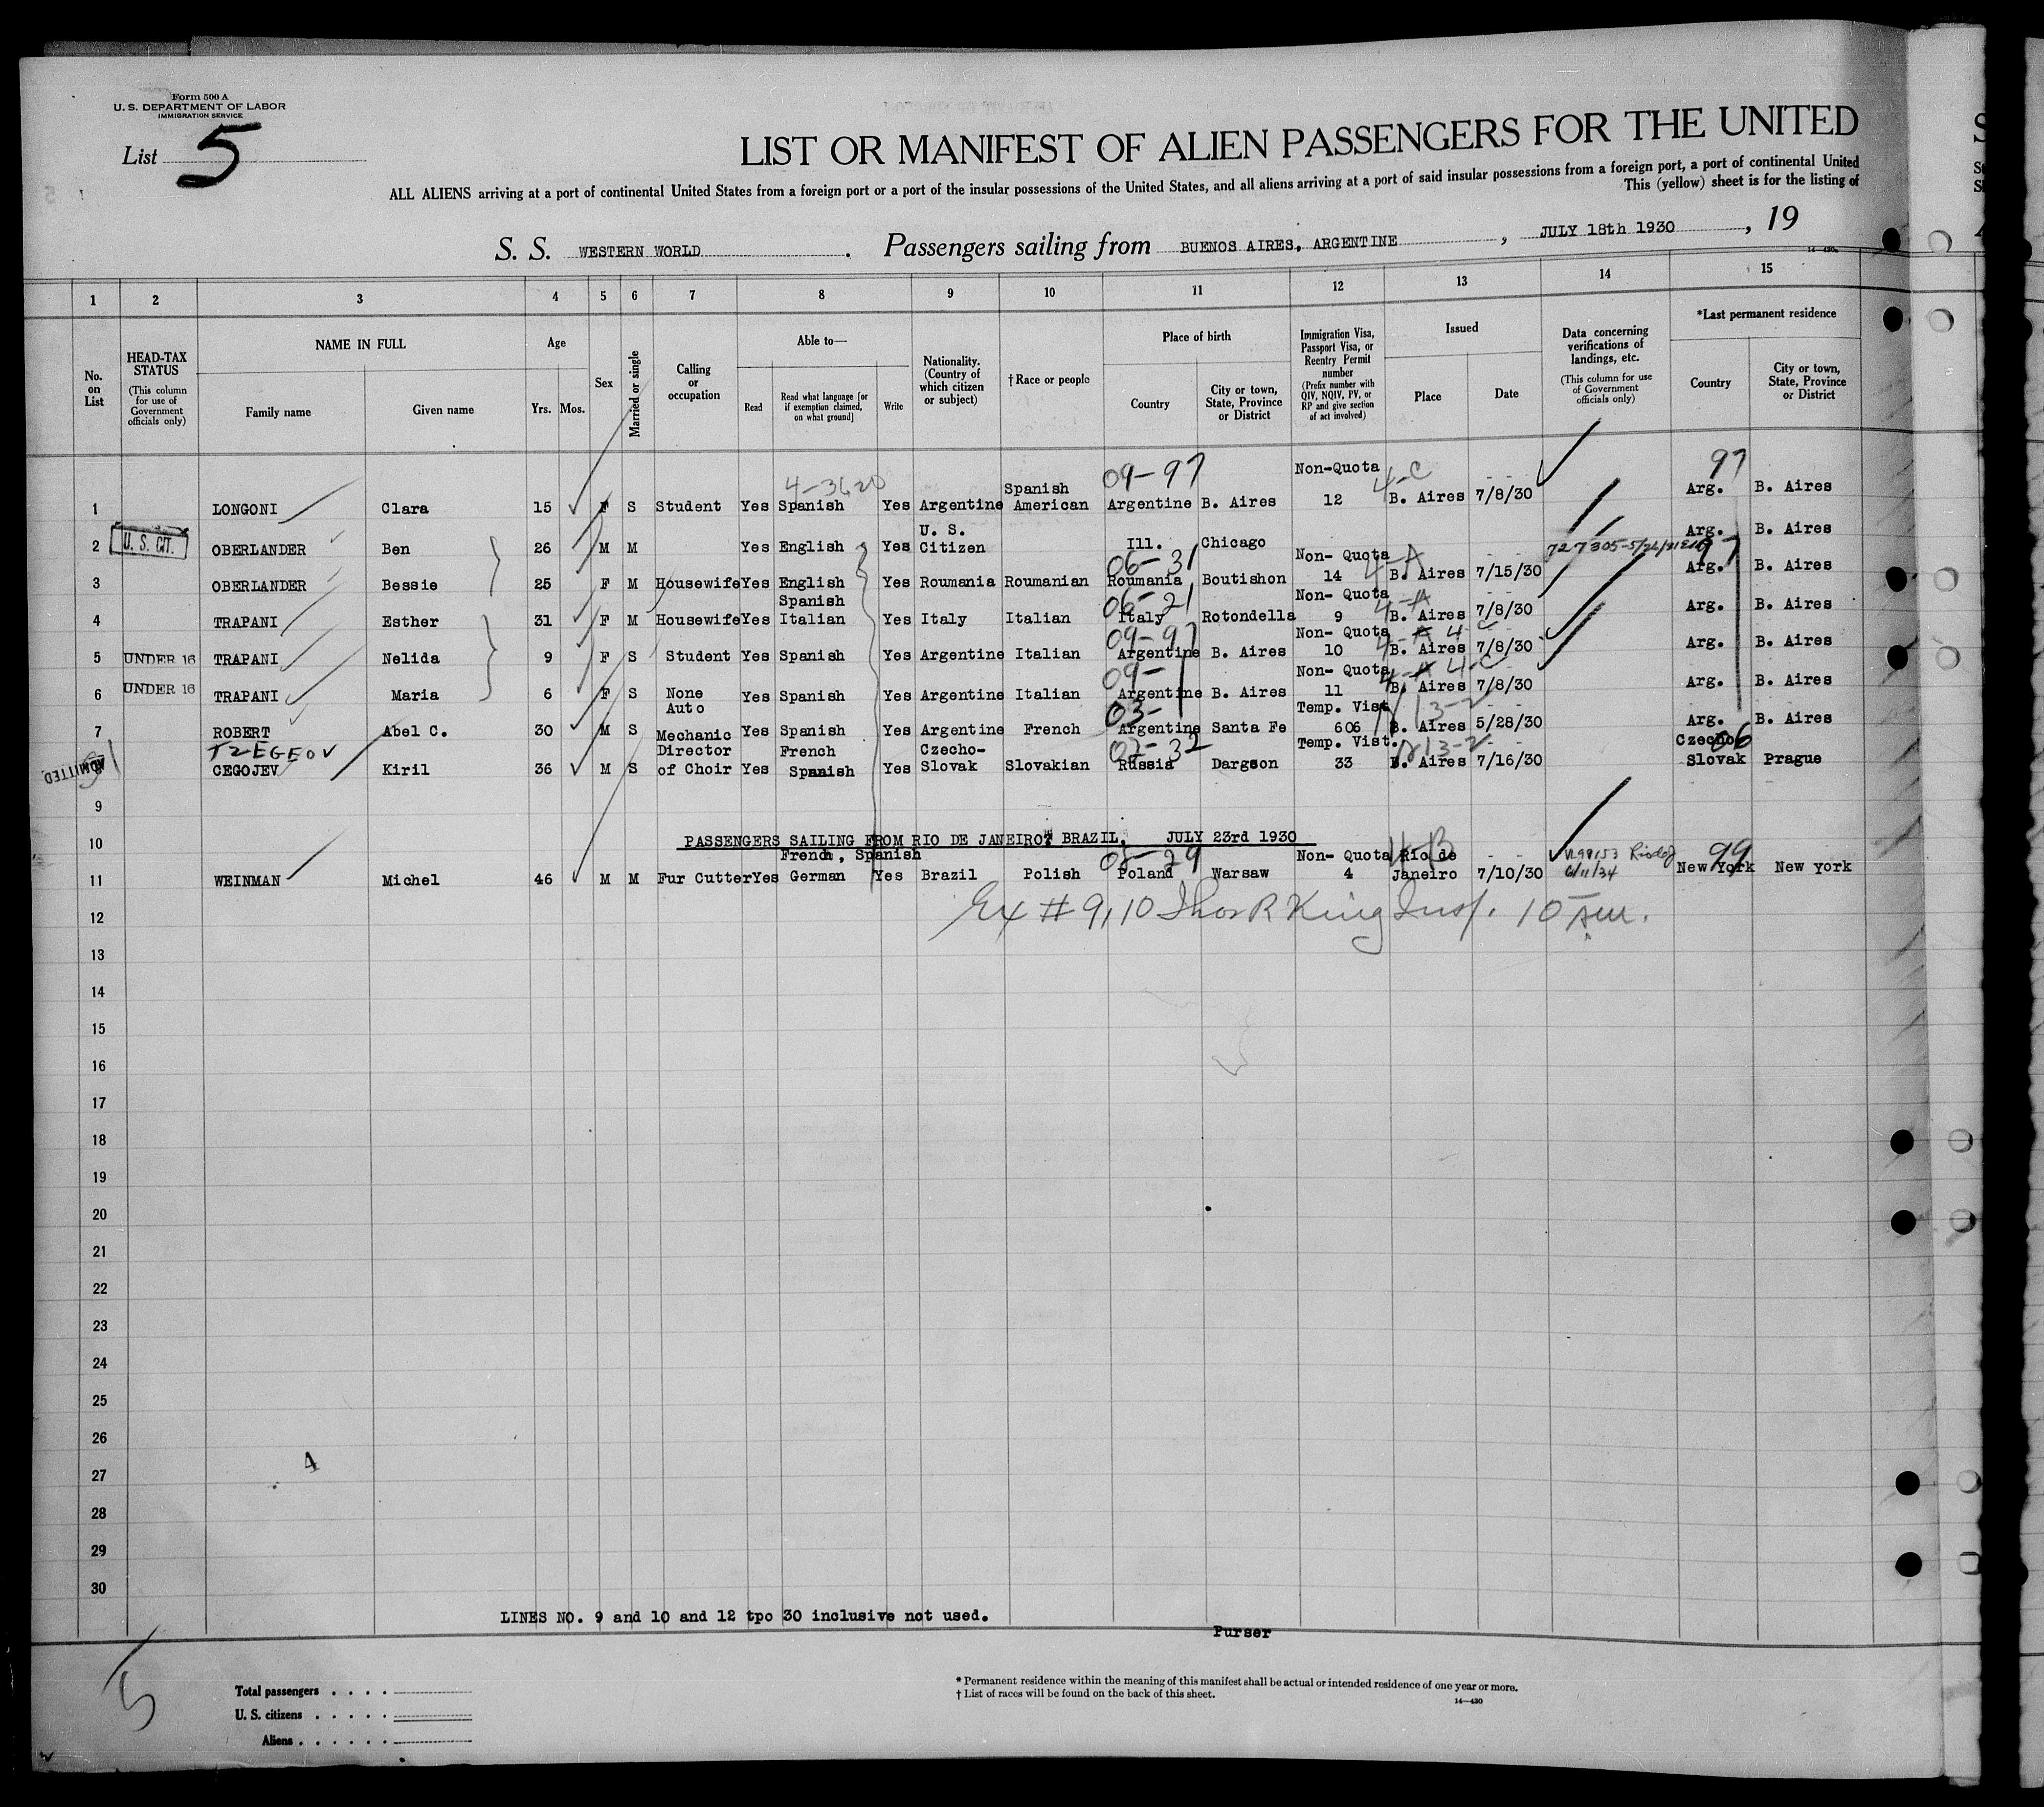 Form 500 A
U. S. DEPARTMENT OF LABOR
IMMIGRATION SERVICE
List 5
LIST OR MANIFEST OF ALIEN PASSENGERS FOR THE UNITED
ALL ALIENS arriving at a port of continental United States from a foreign port or a port of the insular possessions of the United States, and all aliens arriving at a port of said insular possessions from a foreign port, a port of continental United
This (yellow) sheet is for the listing of
S. S. WESTERN WORLD . Passengers sailing from BUENOS AIRES, ARGENTINE , JULY 18th 1930 , 19
14—430
1 2 3 4 5 6 7 8 9 10 11 12 13 14 15
No. on List
HEAD-TAX STATUS
(This column for use of Government officials only)
NAME IN FULL
Family name
Given name
Age
Yrs. Mos.
Sex
Married or single
Calling or occupation
Able to—
Read
Read what language [or if exemption claimed, on what ground]
Write
Nationality. (Country of which citizen or subject)
†Race or people
Place of birth
Country
City or town, State, Province or District
Immigration Visa, Passport Visa, or Reentry Permit number
(Prefix number with QIV, NQIV, PV, or RP and give section of act involved)
Issued
Place
Date
Data concerning verifications of landings, etc.
(This column for use of Government officials only)
*Last permanent residence
Country
City or town, State, Province or District
4-3620 09-97 4-C 97
Spanish Non-Quota
1 LONGONI Clara 15 F S Student Yes Spanish Yes Argentine American Argentine B. Aires 12 B. Aires 7/8/30 Arg. B. Aires
U. S.
2 U. S. CIT. OBERLANDER Ben 26 M M Yes English Yes Citizen Ill. Chicago Arg. B. Aires
06-31 Non- Quota 4-A 97
3 OBERLANDER Bessie 25 F M Housewife Yes English Yes Roumania Roumanian Roumania Boutishon 14 B. Aires 7/15/30 Arg. B. Aires
Spanish 06-21 Non- Quota 4-A
4 TRAPANI Esther 31 F M Housewife Yes Italian Yes Italy Italian Italy Rotondella 9 B. Aires 7/8/30 Arg. B. Aires
09-97 Non- Quota 4-A 4-C
5 UNDER 16 TRAPANI Nelida 9 F S Student Yes Spanish Yes Argentine Italian Argentine B. Aires 10 B. Aires 7/8/30 Arg. B. Aires
09- Non- Quota 4-A 4-C
6 UNDER 16 TRAPANI Maria 6 F S None Yes Spanish Yes Argentine Italian Argentine B. Aires 11 B. Aires 7/8/30 Arg. B. Aires
Auto 03- Temp. Vist 13-2
7 ROBERT Abel C. 30 M S Mechanic Yes Spanish Yes Argentine French Argentine Santa Fe 606 B. Aires 5/28/30 Arg. B. Aires
TZEGEOV Director French Czecho- 02-32 Temp. Vist. 13-2 Czecho 06
ADMITTED 8 CEGOJEV Kiril 36 M S of Choir Yes Spanish Yes Slovak Slovakian Russia Dargson 33 B. Aires 7/16/30 Slovak Prague
9
10 PASSENGERS SAILING FROM RIO DE JANEIRO, BRAZIL, JULY 23rd 1930
French, Spanish 05-29 Non- Quota 4-B Rio de 99
11 WEINMAN Michel 46 M M Fur Cutter Yes German Yes Brazil Polish Poland Warsaw 4 Janeiro 7/10/30 6/11/34 New York New york
12 Ex # 9, 10 Thos R King Insp. 10 am.
13
14
15
16
17
18
19
20
21
22
23
24
25
26
27
28
29
30
4
LINES NO. 9 and 10 and 12 tpo 30 inclusive not used.
Purser
5
Total passengers
U. S. citizens
Aliens
* Permanent residence within the meaning of this manifest shall be actual or intended residence of one year or more.
† List of races will be found on the back of this sheet.
14—430